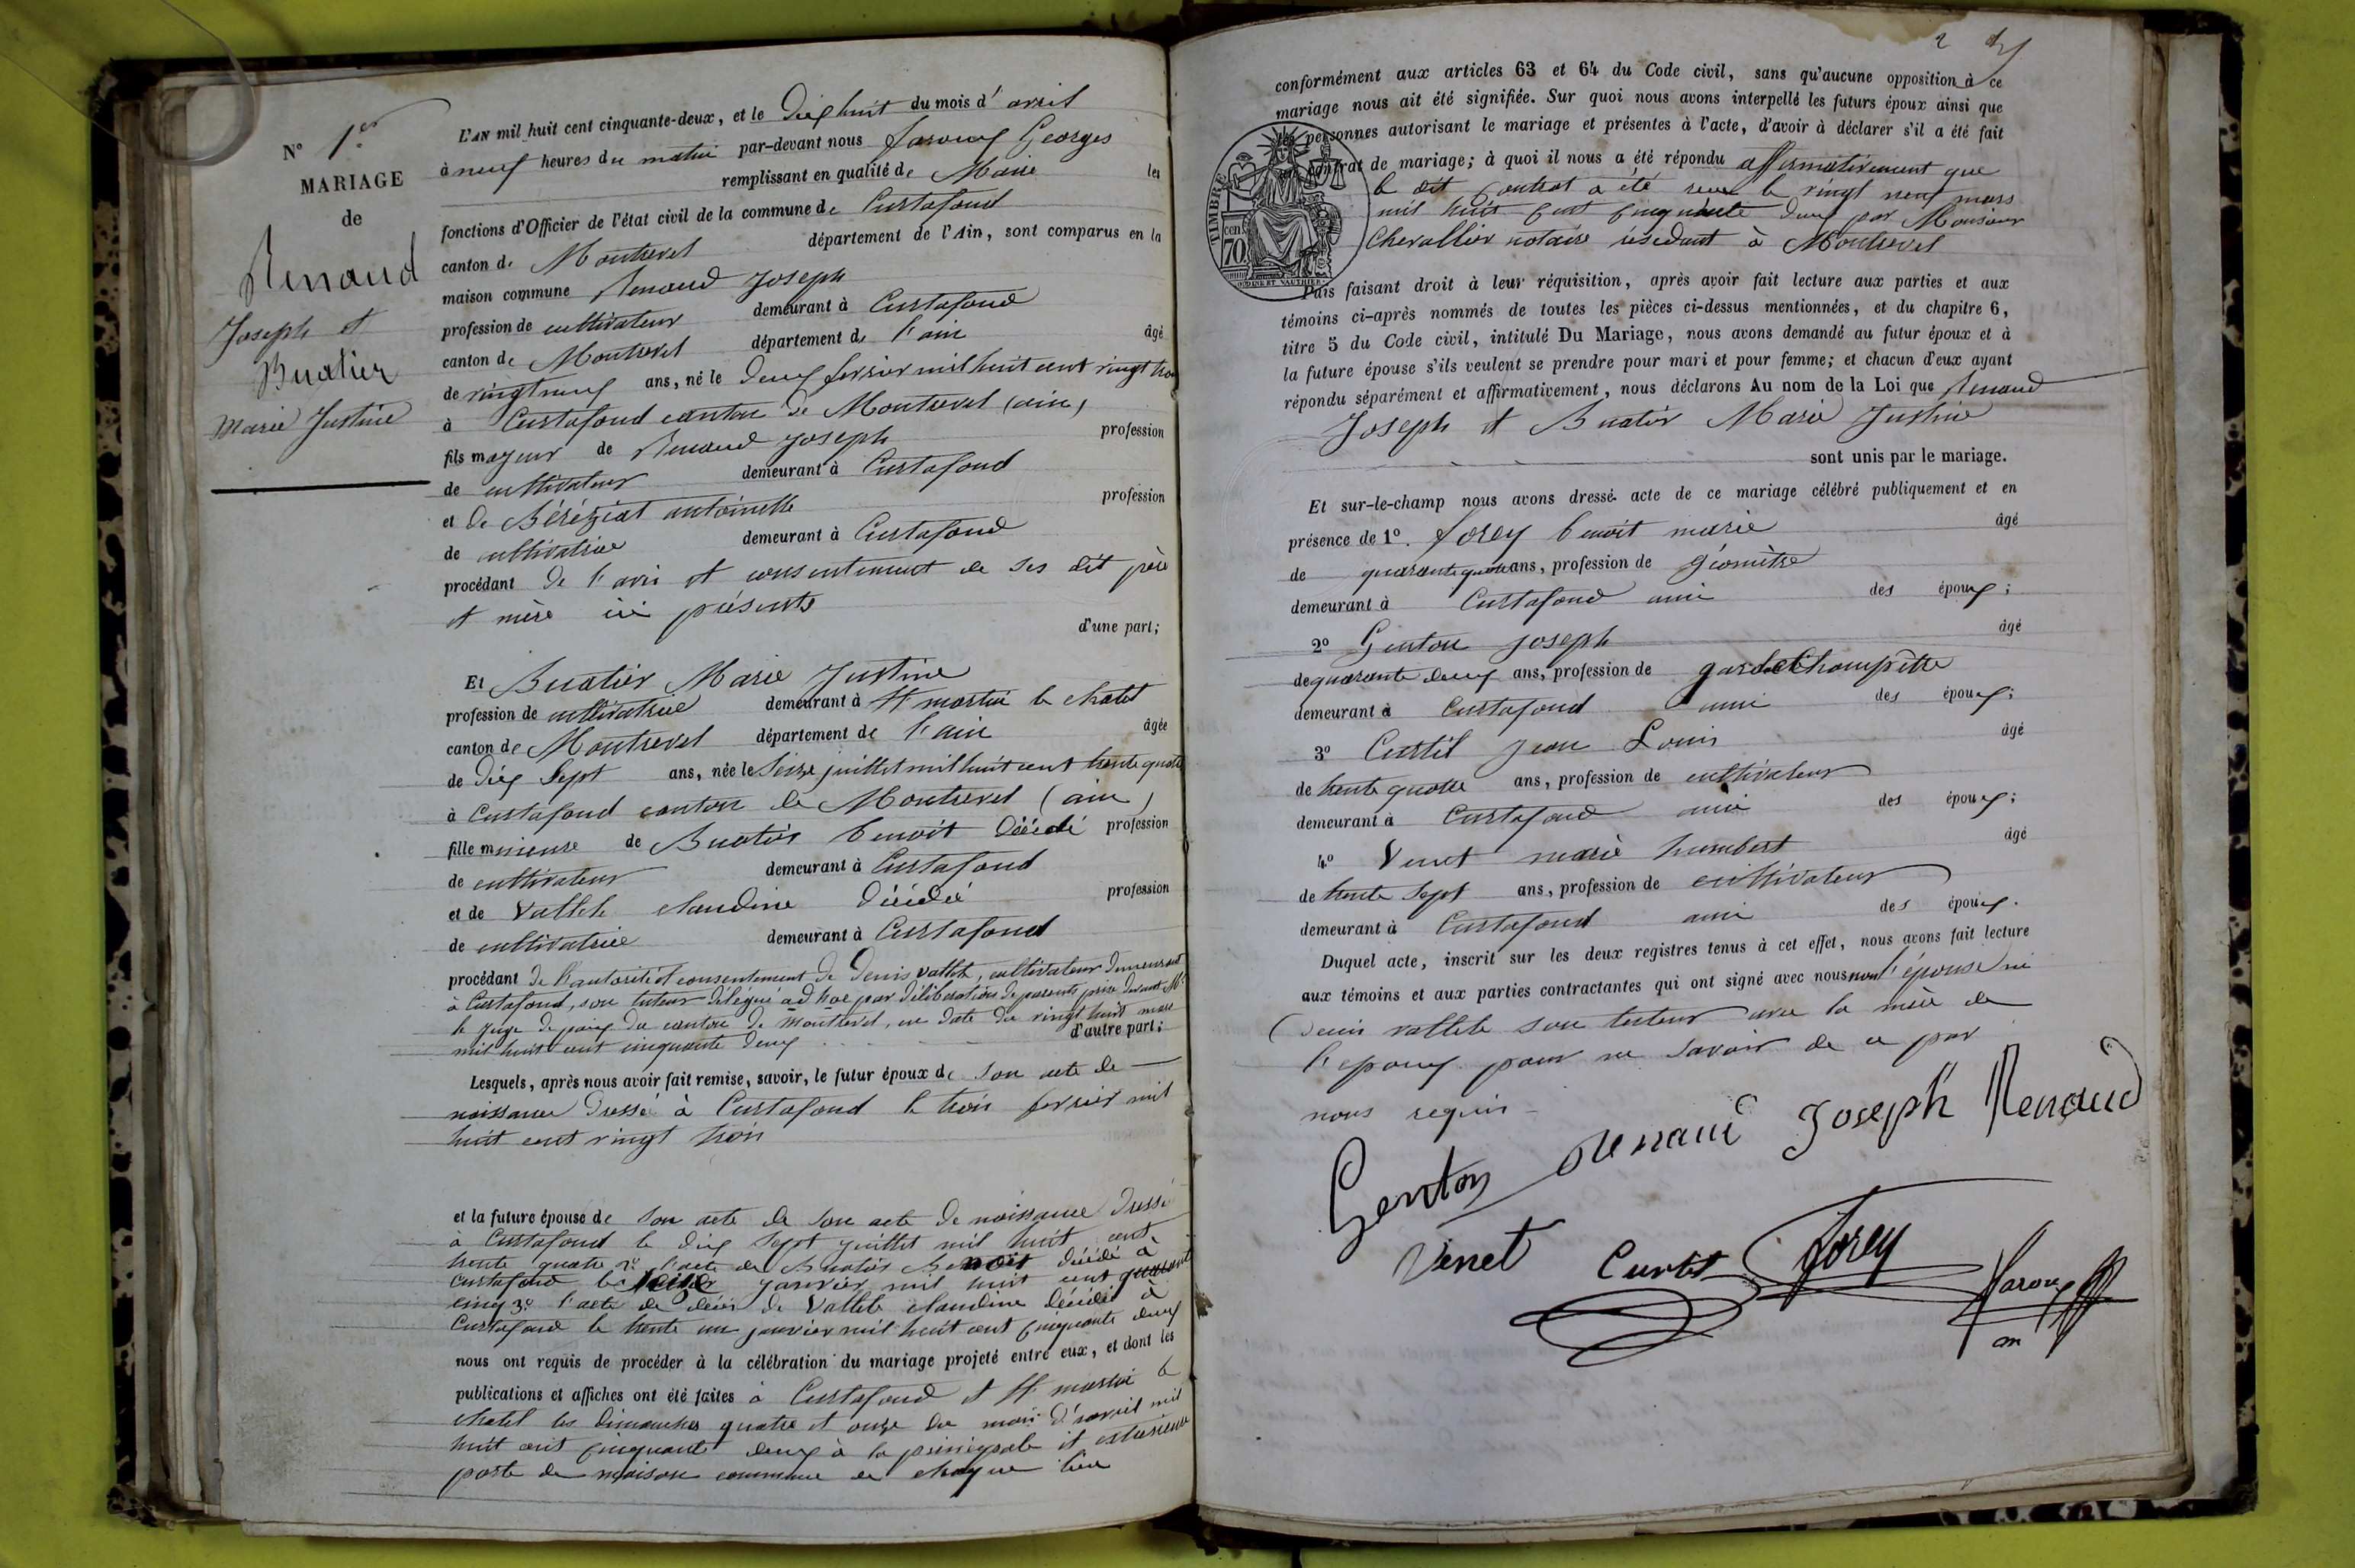 N° 1er
MARIAGE
de
Renaud
Joseph et
Buatier
Marie Justine
L'AN mil huit cent cinquante-deux, et le Dix huit du mois d'avril
à neuf heures du matin par-devant nous Georges
remplissant en qualité de Maire les
fonctions d'Officier de l'état civil de la commune de Curtafond
canton de Montrevel département de l'Ain, sont comparus en la
maison commune Renaud Joseph
profession de cultivateur demeurant à Curtafond
canton de Montrevel département de l'ain âgé
de vingt neuf ans, né le deux fevrier mil huit cent vingt trois
à Curtafond canton de Montrevel (ain)
fils majeur de Renaud Joseph profession
de cultivateur demeurant à Curtafond
et de Béréziat antoinette profession
de cultivatrice demeurant à Curtafond
procédant de l'avis et consentement de ses dit père
et mère ici présents
d'une part;
Et Buatier Marie Justine
profession de cultivatrice demeurant à St martin le chatel
canton de Montrevel département de l'ain âgée
de dix Sept ans, née le Seize juillet mil huit cent trente quatre
à Curtafond canton de Montrevel (ain)
fille mineure de Buatier benoit décédé profession
de cultivateur demeurant à Curtafond
et de Vallet claudine décédée profession
de cultivatrice demeurant à Curtafond
procédant de l'autorité et consentement de Denis Vallet, cultivateur demeurant
à Curtafond, son tuteur délégué ad hoc par délibération de parents prise devant Mr
le juge de paix du canton de Montrevel, en date du vingt huit mars
mil huit cent cinquante deux d'autre part;
Lesquels, après nous avoir fait remise, savoir, le futur époux de son acte de
naissance dressé à Curtafond le trois fevrier mil
huit cent vingt trois
et la future épouse de son acte de son acte de naissance dressé
à Curtafond le dix Sept juillet mil huit cent
trente quatre 2° l'acte de Buatier Benoit décédé à
Curtafond le Seize janvier mil huit cent quarante
cinq 3° l'acte de décès de Vallet claudine décédée à
Curtafond le trente un janvier mil huit cent cinquante deux
nous ont requis de procéder à la célébration du mariage projeté entre eux, et dont les
publications et affiches ont été faites à Curtafond et St martin le
chatel les dimanches quatre et onze du mois d'avril mil
huit cent cinquante deux à la principale et exterieure
porte de maison commune de chaque lieu
2
conformément aux articles 63 et 64 du Code civil, sans qu'aucune opposition à ce
mariage nous ait été signifiée. Sur quoi nous avons interpellé les futurs époux ainsi que
les personnes autorisant le mariage et présentes à l'acte, d'avoir à déclarer s'il a été fait
contrat de mariage; à quoi il nous a été répondu affirmativement que
le dit contrat a été reçu le vingt neuf mars
mil huit cent cinquante deux par Monsieur
Chevallier notaire résidant à Montrevel
TIMBRE
cent
70
Puis faisant droit à leur réquisition, après avoir fait lecture aux parties et aux
témoins ci-après nommés de toutes les pièces ci-dessus mentionnées, et du chapitre 6,
titre 5 du Code civil, intitulé Du Mariage, nous avons demandé au futur époux et à
la future épouse s'ils veulent se prendre pour mari et pour femme; et chacun d'eux ayant
répondu séparément et affirmativement, nous déclarons Au nom de la Loi que Renaud
Joseph et Buatier Marie Justine
sont unis par le mariage.
Et sur-le-champ nous avons dressé acte de ce mariage célébré publiquement et en
présence de 1°. Forey benoit marie âgé
de quarante quatre ans, profession de géomètre
demeurant à Curtafond ami des époux;
2° Genton Joseph âgé
de quarante deux ans, profession de garde Champêtre
demeurant à Curtafond ami des époux;
3° Curtil Jean Louis âgé
de trente quatre ans, profession de cultivateur
demeurant à Curtafond ami des époux;
4° Venet marie humbert âgé
de trente Sept ans, profession de cultivateur
demeurant à Curtafond ami des époux.
Duquel acte, inscrit sur les deux registres tenus à cet effet, nous avons fait lecture
aux témoins et aux parties contractantes qui ont signé avec nous non l'épouse ni
Denis vallet son tuteur avec la mère de
l'epoux pour ne savoir de ce par
nous requis
Genton Renaud Joseph Renaud
Venet Curtil Forey